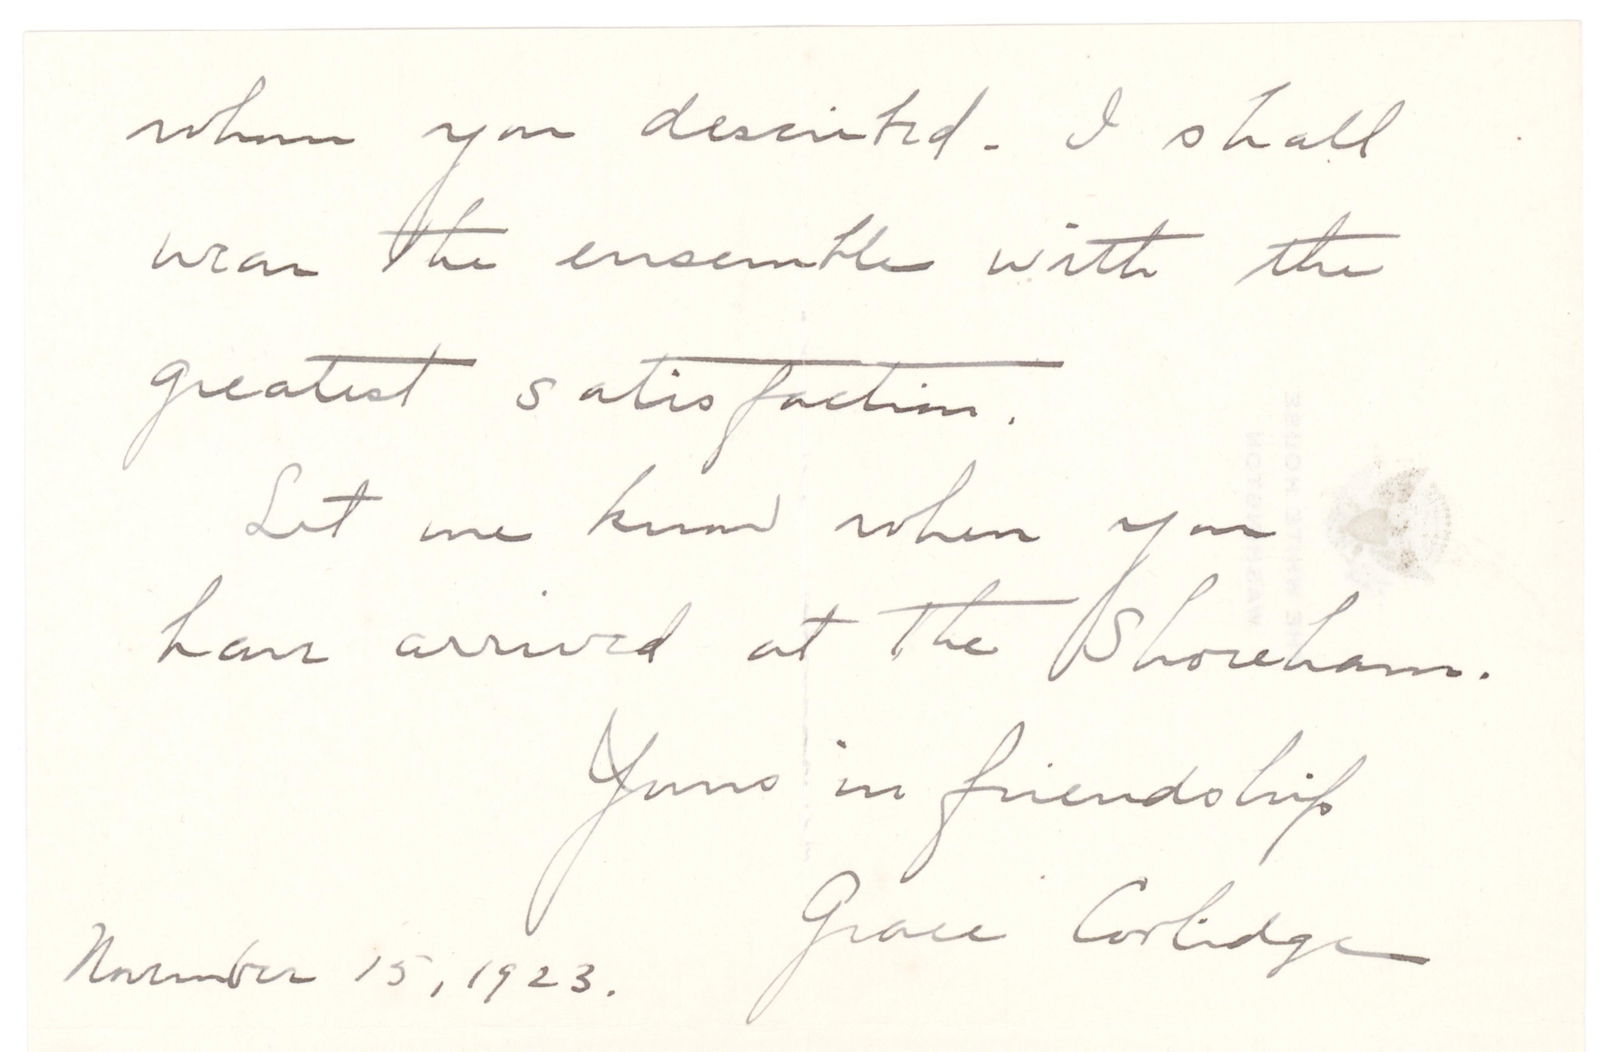 whom you described. I shall
wear the ensemble with the
greatest satisfaction.
Let me know when you
have arrived at the Shoreham.
Yours in friendship
Grace Coolidge
November 15, 1923.
THE WHITE HOUSE
WASHINGTON